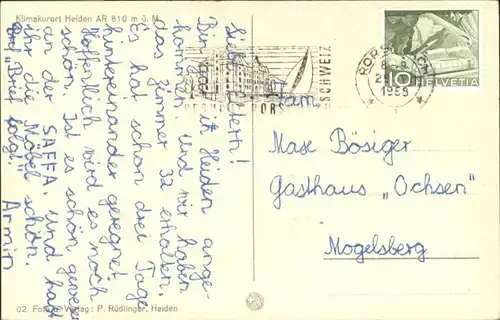 Klimakurort Heiden AR 810 m ü. M.
Liebe Eltern!
Bin gut in Heiden ange-
kommen, und wir haben
das Zimmer 32 erhalten.
Es hat schon drei Tage
hintereinander geregnet.
Hoffentlich wird es noch
schön. Ist es schön gewesen
an der SAFFA, und habt
ihr die Möbel schon.
Brief folgt.
Armin
SCHWEIZ
RORSCHACH
1955
10
HELVETIA
Fam.
Mase Bösiger
Gasthaus „Ochsen"
Mogelsberg
02. Foto-Verlag: P. Rüdlinger, Heiden